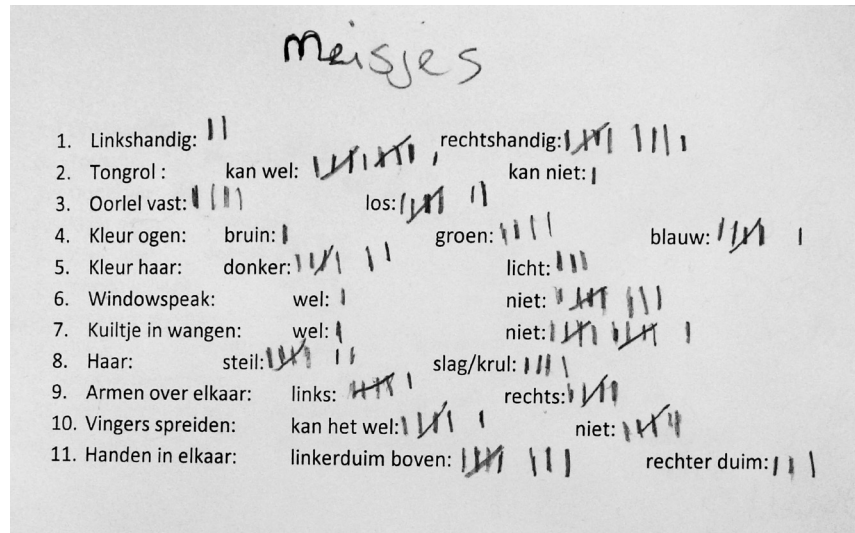 Meisjes
1. Linkshandig: || rechtshandig: 卌 ||||
2. Tongrol : kan wel: 卌 卌 kan niet: |
3. Oorlel vast: |||| los: 卌 ||
4. Kleur ogen: bruin: | groen: |||| blauw: 卌 |
5. Kleur haar: donker: 卌 || licht: |||
6. Windowspeak: wel: | niet: 卌 |||
7. Kuiltje in wangen: wel: | niet: 卌 卌 |
8. Haar: steil: 卌 || slag/krul: ||||
9. Armen over elkaar: links: 卌 | rechts: 卌
10. Vingers spreiden: kan het wel: 卌 | niet: 卌
11. Handen in elkaar: linkerduim boven: 卌 ||| rechter duim: |||